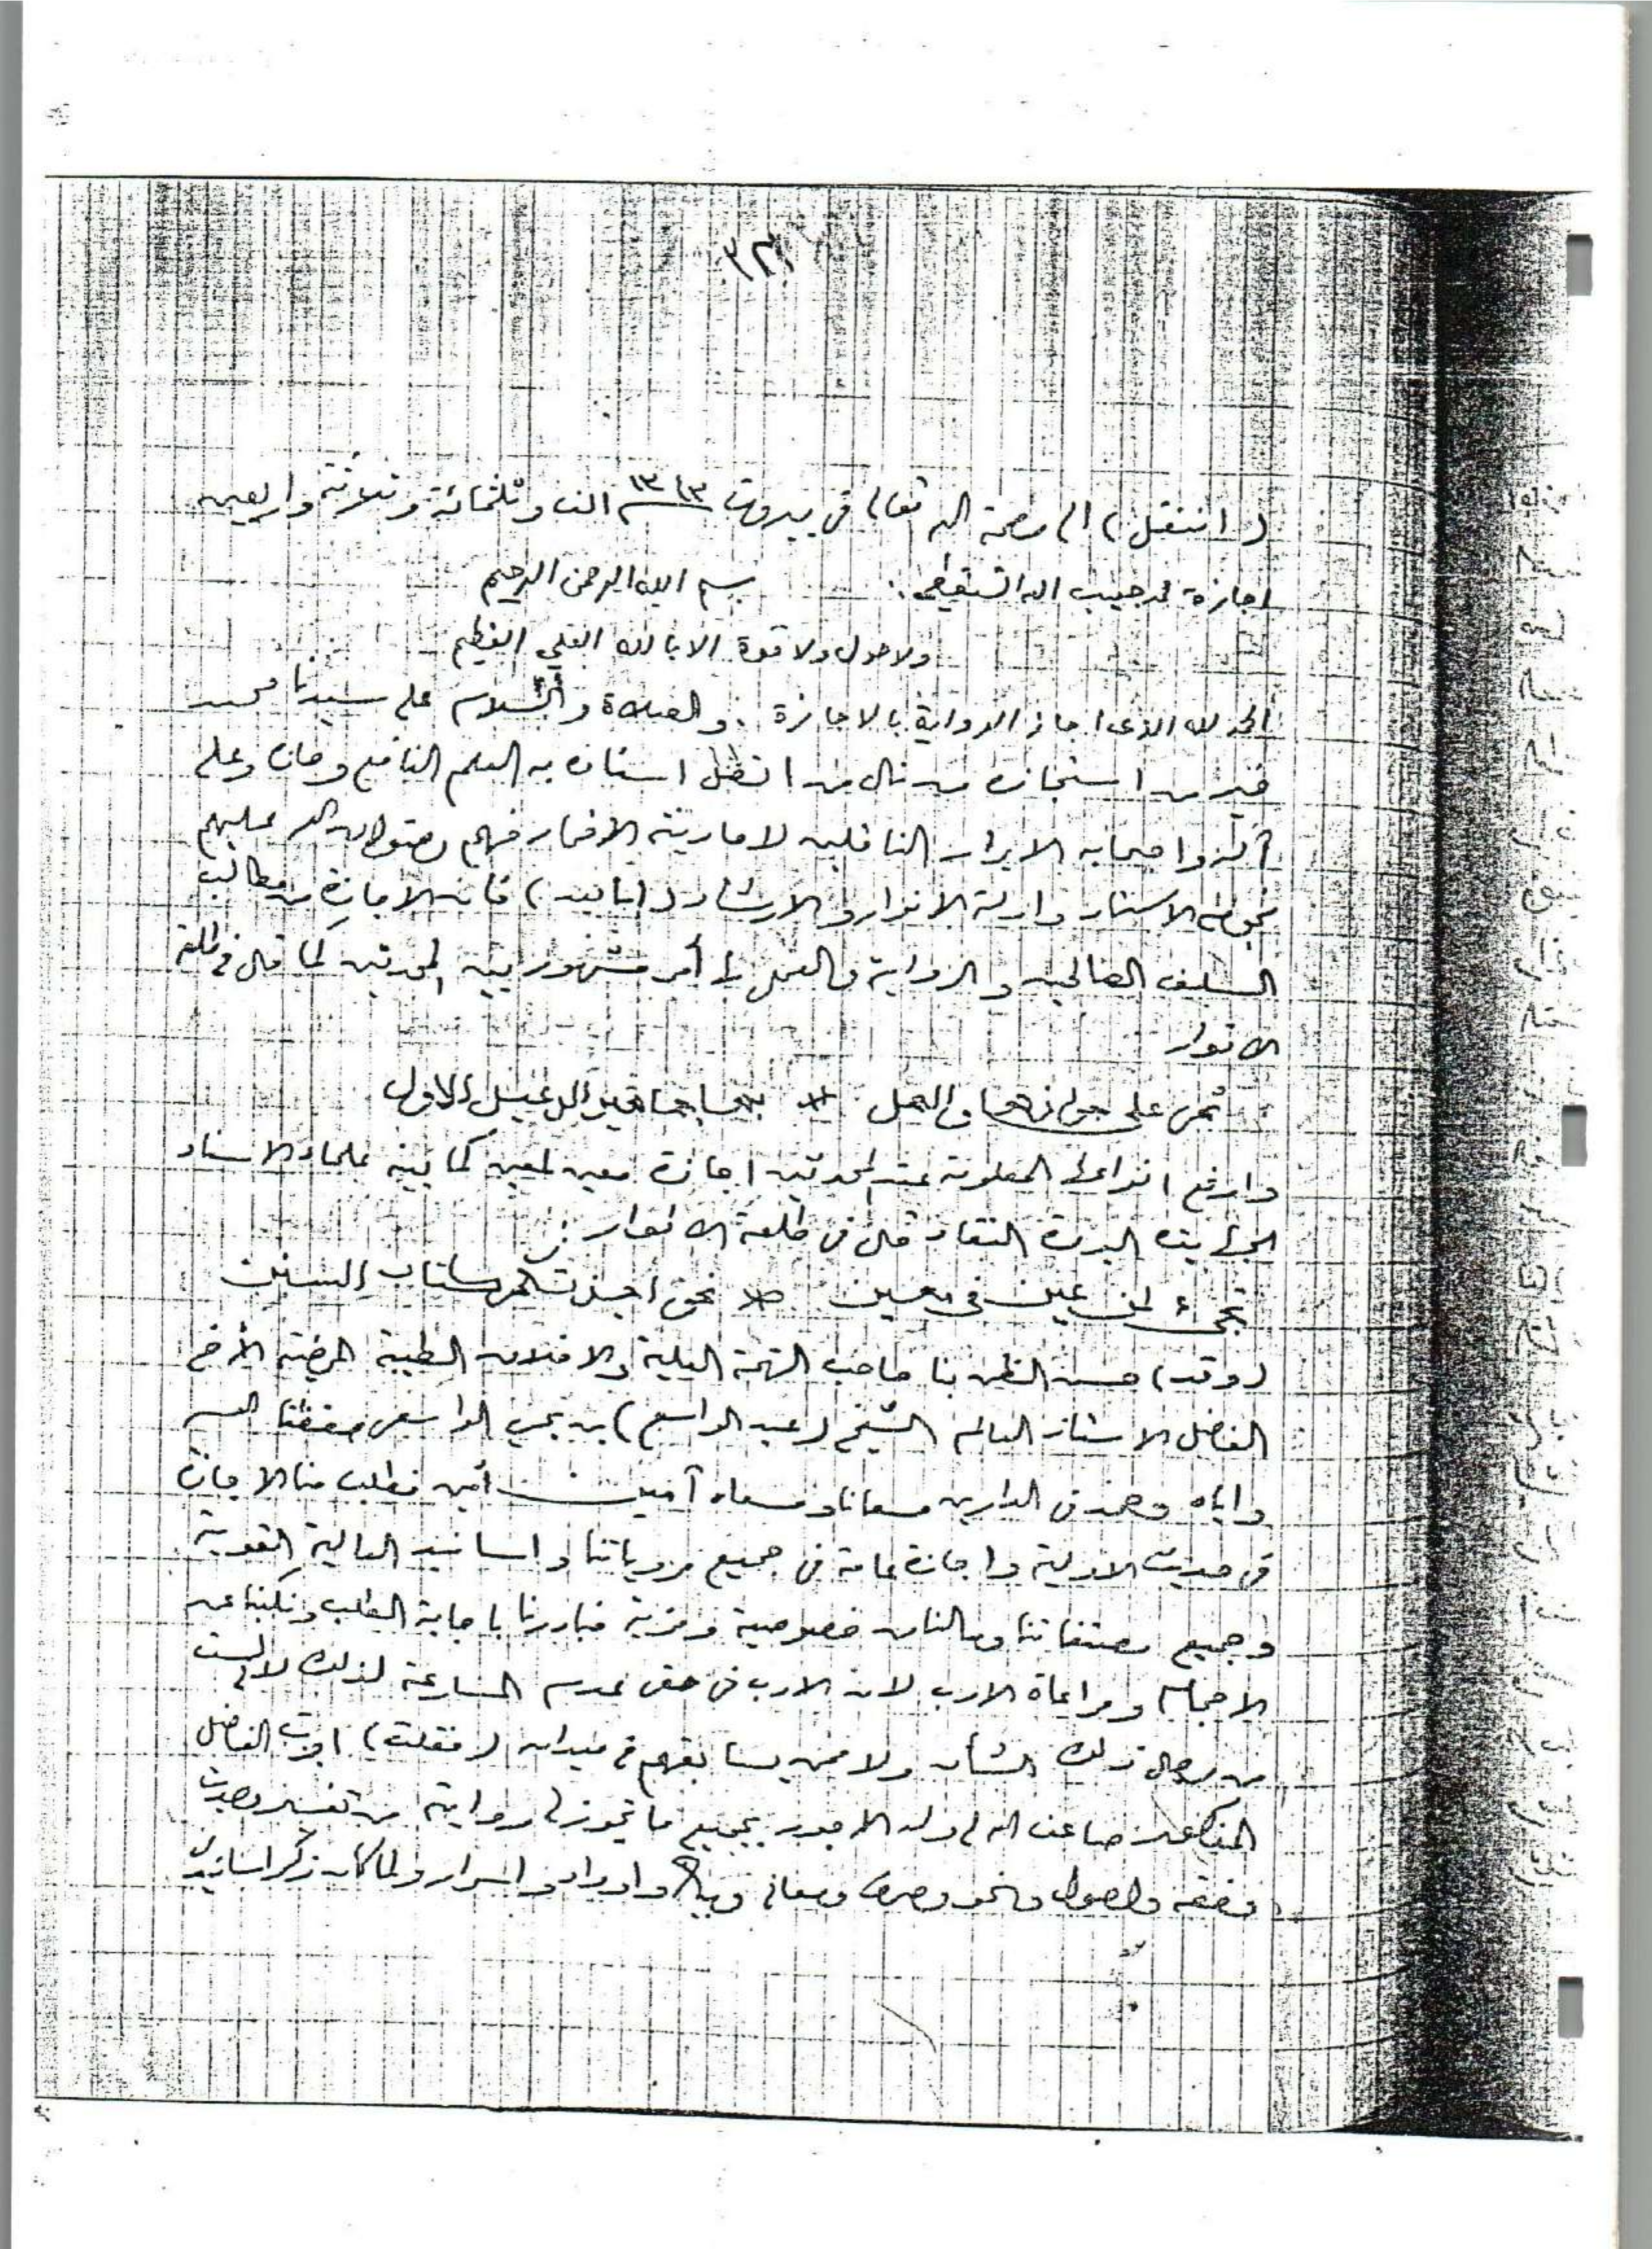 ٣٢١
(انتقل) الى رحمة الله تعالى في بيروت ١٣٤٣ الف وثلثمائة وثلاثة واربعين
اجازة محمد حبيب الله الشنقيطي . بسم الله الرحمن الرحيم
ولا حول ولا قوة الا بالله العلي العظيم
الحمد لله الذى اجاز الرواية بالاجازة . والصلاة والسلام على سيدنا محمد
خير من استجازه من نال من افضل استاذ به العلم النافع وحازه وعلى
آله واصحابه الابرار الناقلين لاحاديثه الاخيار فهم رضوان الله عليهم
الاستار وادلة الانوار والارشاد (اما بعد) فان الاجازة من مطالب
السلف الصالحين والرواية والعمل بها أمر مشهور بين المحدثين كما قال في طلعة
الانوار
ثم على جوازها والعمل * بها جماهير الرعيل الاول
وارفع انواعها المعلومة عند المحدثين اجازة معين لمعين كما بينه علماء الاسناد
الجهابذة البررة النقاد قال في طلعة الانوار :
تجيء لمن عين في معين * نحو اجزتكم كتاب السنن
(وقد) حسن الظن بنا صاحب الهمة العلية والاخلاق الطيبة المرضية الأخ
الفاضل الاستاذ العالم الشيخ (عبد الواسع) بن يحي الواسعى حفظنا الله
واياه وحمد في الدارين مسعانا ومسعاه آمين آمين فطلب منا الاجازة
في حديث الاولية واجازة عامة في جميع مروياتنا واسانيد العالية القوية
وجميع مصنفاتنا وما لنا من خصوصية ومزية فبادرنا باجابة الطلب ونكبنا عن
الاحجام ومراعاة الادب لان الادب في حقى عدم المسارعة لذلك لاني لست
من رجال ذلك الشأن ولا ممن يسابقهم في ميدان (فقلت) اجزت الفاضل
المذكور ضاعف الله لي وله الاجور بجميع ما تجوز لي روايته من تفسير وحديث
وفقه واصول ونحو وصرف ومعاني وبيان واوراد واسرار ولما كان ذكر اسانيدى